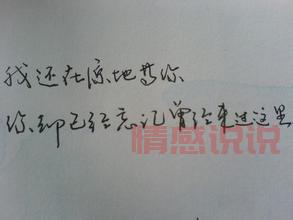 我还在原地等你
你却已经忘记曾经来过这里
情感说说